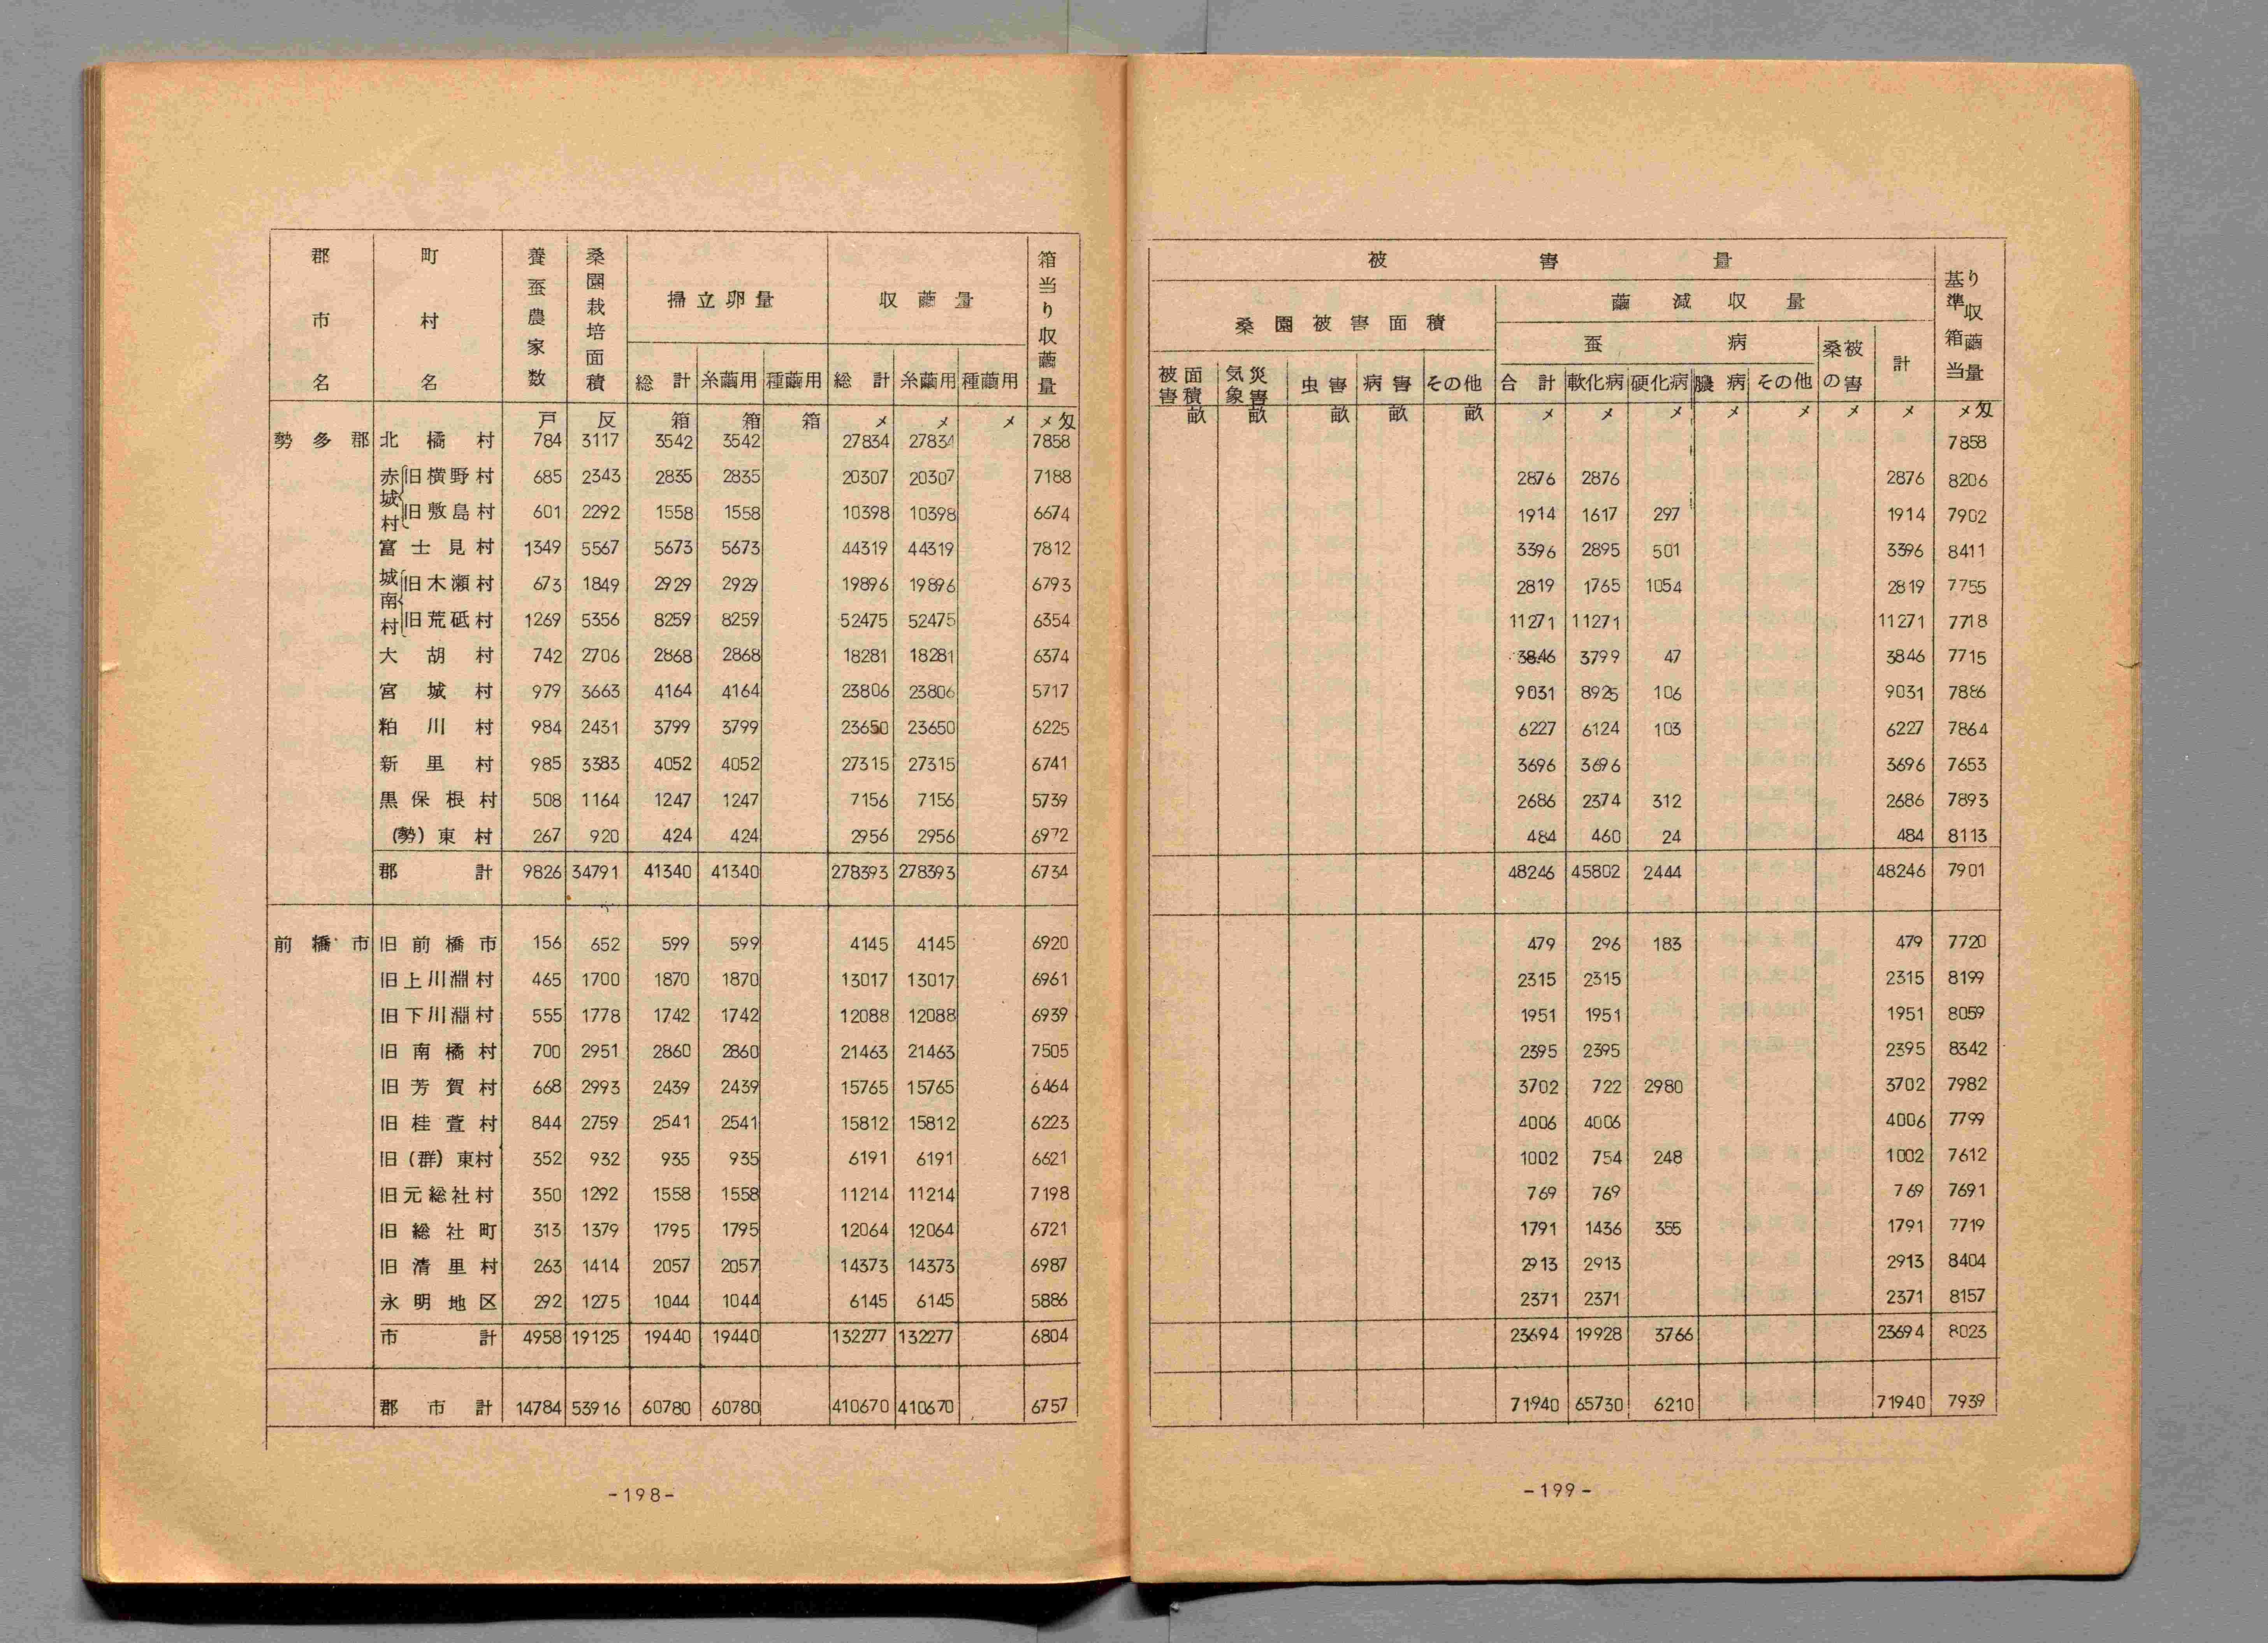 郡市名 町村名 養蚕農家数 桑園栽培面積 掃立卵量 収繭量 箱当り収繭量
総計 糸繭用 種繭用 総計 糸繭用 種繭用
戸 反 箱 箱 箱 メ メ メ メ匁
勢多郡 北橘村 784 3117 3542 3542 27834 27834 7858
赤城村 旧横野村 685 2343 2835 2835 20307 20307 7188
旧敷島村 601 2292 1558 1558 10398 10398 6674
富士見村 1349 5567 5673 5673 44319 44319 7812
城南村 旧木瀬村 673 1849 2929 2929 19896 19896 6793
旧荒砥村 1269 5356 8259 8259 52475 52475 6354
大胡村 742 2706 2868 2868 18281 18281 6374
宮城村 979 3663 4164 4164 23806 23806 5717
粕川村 984 2431 3799 3799 23650 23650 6225
新里村 985 3383 4052 4052 27315 27315 6741
黒保根村 508 1164 1247 1247 7156 7156 5739
(勢)東村 267 920 424 424 2956 2956 6972
郡計 9826 34791 41340 41340 278393 278393 6734
前橋市 旧前橋市 156 652 599 599 4145 4145 6920
旧上川淵村 465 1700 1870 1870 13017 13017 6961
旧下川淵村 555 1778 1742 1742 12088 12088 6939
旧南橘村 700 2951 2860 2860 21463 21463 7505
旧芳賀村 668 2993 2439 2439 15765 15765 6464
旧桂萱村 844 2759 2541 2541 15812 15812 6223
旧(群)東村 352 932 935 935 6191 6191 6621
旧元総社村 350 1292 1558 1558 11214 11214 7198
旧総社町 313 1379 1795 1795 12064 12064 6721
旧清里村 263 1414 2057 2057 14373 14373 6987
永明地区 292 1275 1044 1044 6145 6145 5886
市計 4958 19125 19440 19440 132277 132277 6804
郡市計 14784 53916 60780 60780 410670 410670 6757
-198-
被害量 基準箱当り収繭量
桑園被害面積 繭減収量
蚕病 桑の被害 計
被害面積 気象災害 虫害 病害 その他 合計 軟化病 硬化病 膿病 その他
畝 畝 畝 畝 畝 メ メ メ メ メ メ メ メ匁
7858
2876 2876 2876 8206
1914 1617 297 1914 7902
3396 2895 501 3396 8411
2819 1765 1054 2819 7755
11271 11271 11271 7718
3846 3799 47 3846 7715
9031 8925 106 9031 7886
6227 6124 103 6227 7864
3696 3696 3696 7653
2686 2374 312 2686 7893
484 460 24 484 8113
48246 45802 2444 48246 7901
479 296 183 479 7720
2315 2315 2315 8199
1951 1951 1951 8059
2395 2395 2395 8342
3702 722 2980 3702 7982
4006 4006 4006 7799
1002 754 248 1002 7612
769 769 769 7691
1791 1436 355 1791 7719
2913 2913 2913 8404
2371 2371 2371 8157
23694 19928 3766 23694 8023
71940 65730 6210 71940 7939
-199-